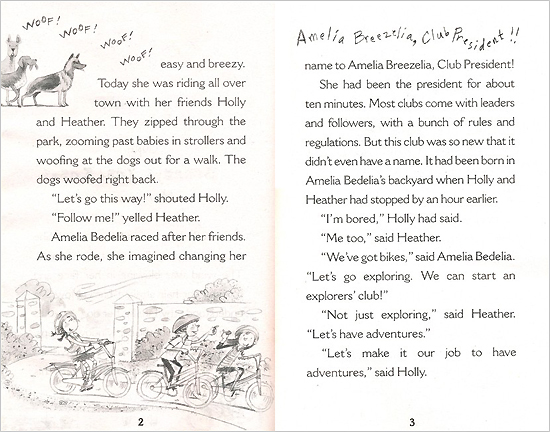 WOOF!
WOOF!
WOOF!
WOOF!
easy and breezy.
Today she was riding all over
town with her friends Holly
and Heather. They zipped through the
park, zooming past babies in strollers and
woofing at the dogs out for a walk. The
dogs woofed right back.
“Let’s go this way!” shouted Holly.
“Follow me!” yelled Heather.
Amelia Bedelia raced after her friends.
As she rode, she imagined changing her
2
Amelia Breezelia, Club President!!
name to Amelia Breezelia, Club President!
She had been the president for about
ten minutes. Most clubs come with leaders
and followers, with a bunch of rules and
regulations. But this club was so new that it
didn’t even have a name. It had been born in
Amelia Bedelia’s backyard when Holly and
Heather had stopped by an hour earlier.
“I’m bored,” Holly had said.
“Me too,” said Heather.
“We’ve got bikes,” said Amelia Bedelia.
“Let’s go exploring. We can start an
explorers’ club!”
“Not just exploring,” said Heather.
“Let’s have adventures.”
“Let’s make it our job to have
adventures,” said Holly.
3